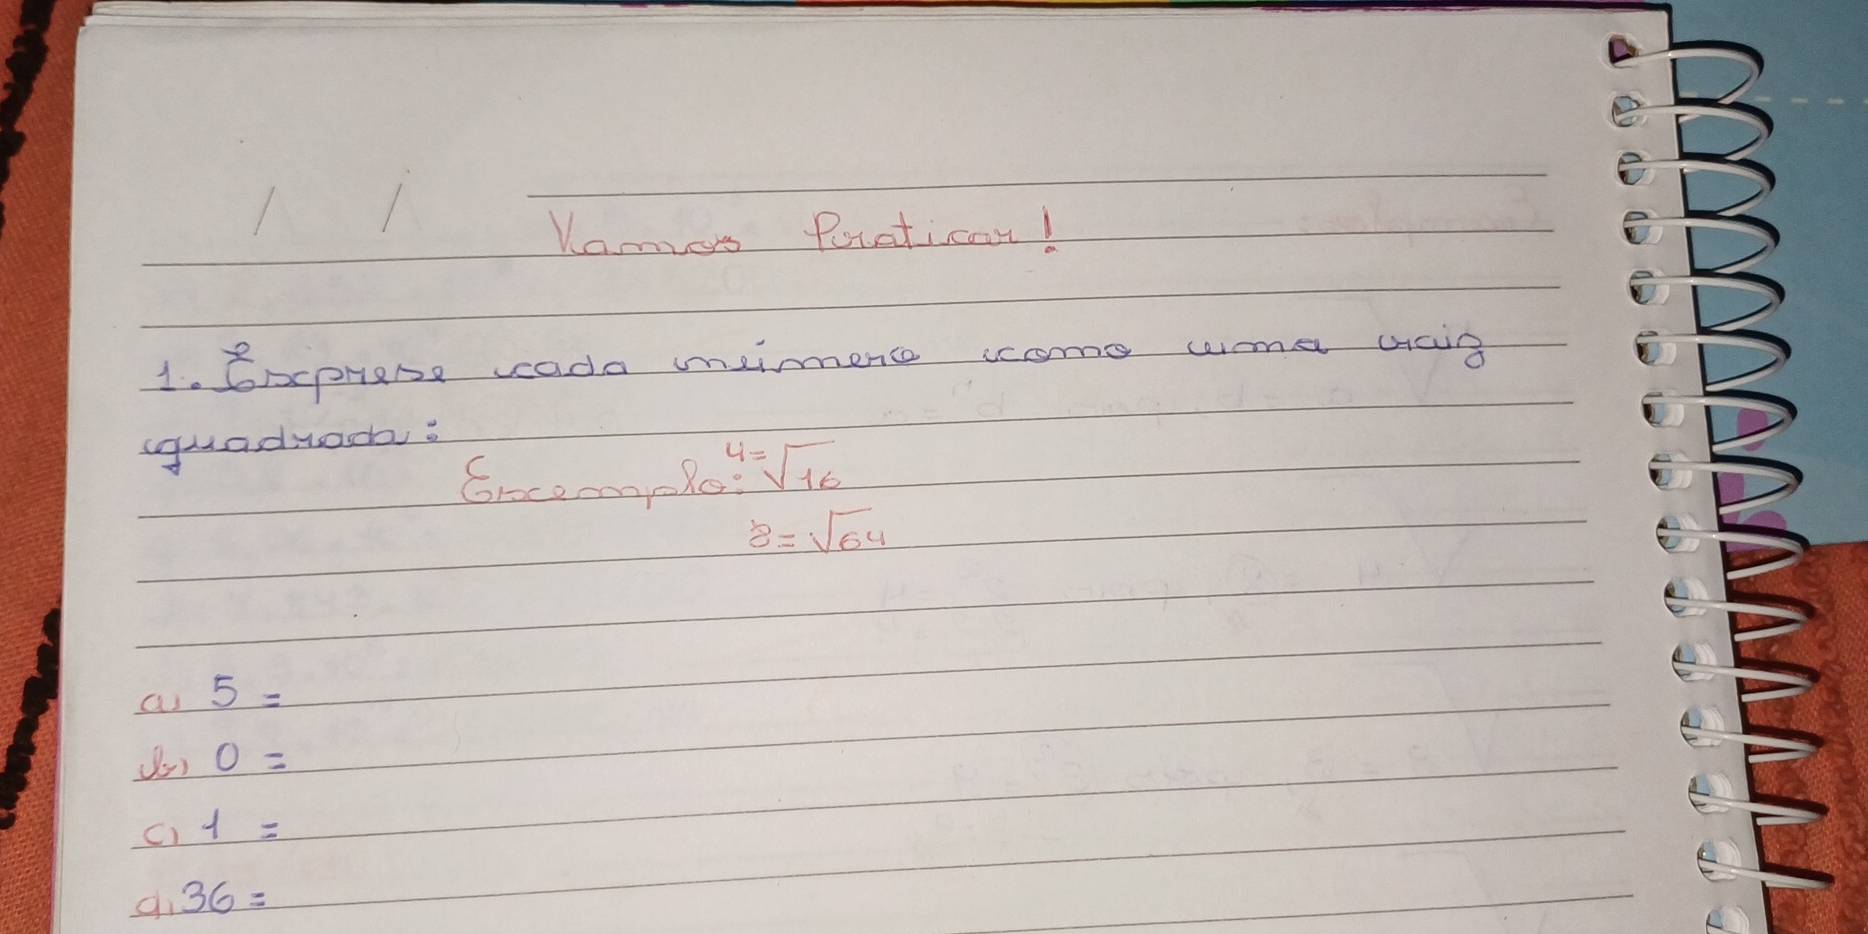 Vamos Praticar!
1. Exprese cada número como uma raiz
quadrada:
Exemplo: 4=√16
8=√64
a) 5 =
b) 0 =
c) 1 =
d) 36 =